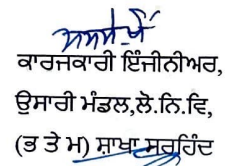 ਕਾਰਜਕਾਰੀ ਇੰਜੀਨੀਅਰ,
ਉਸਾਰੀ ਮੰਡਲ,ਲੋ.ਨਿ.ਵਿ,
(ਭ ਤੇ ਮ) ਸ਼ਾਖਾ ਸਰਹਿੰਦ